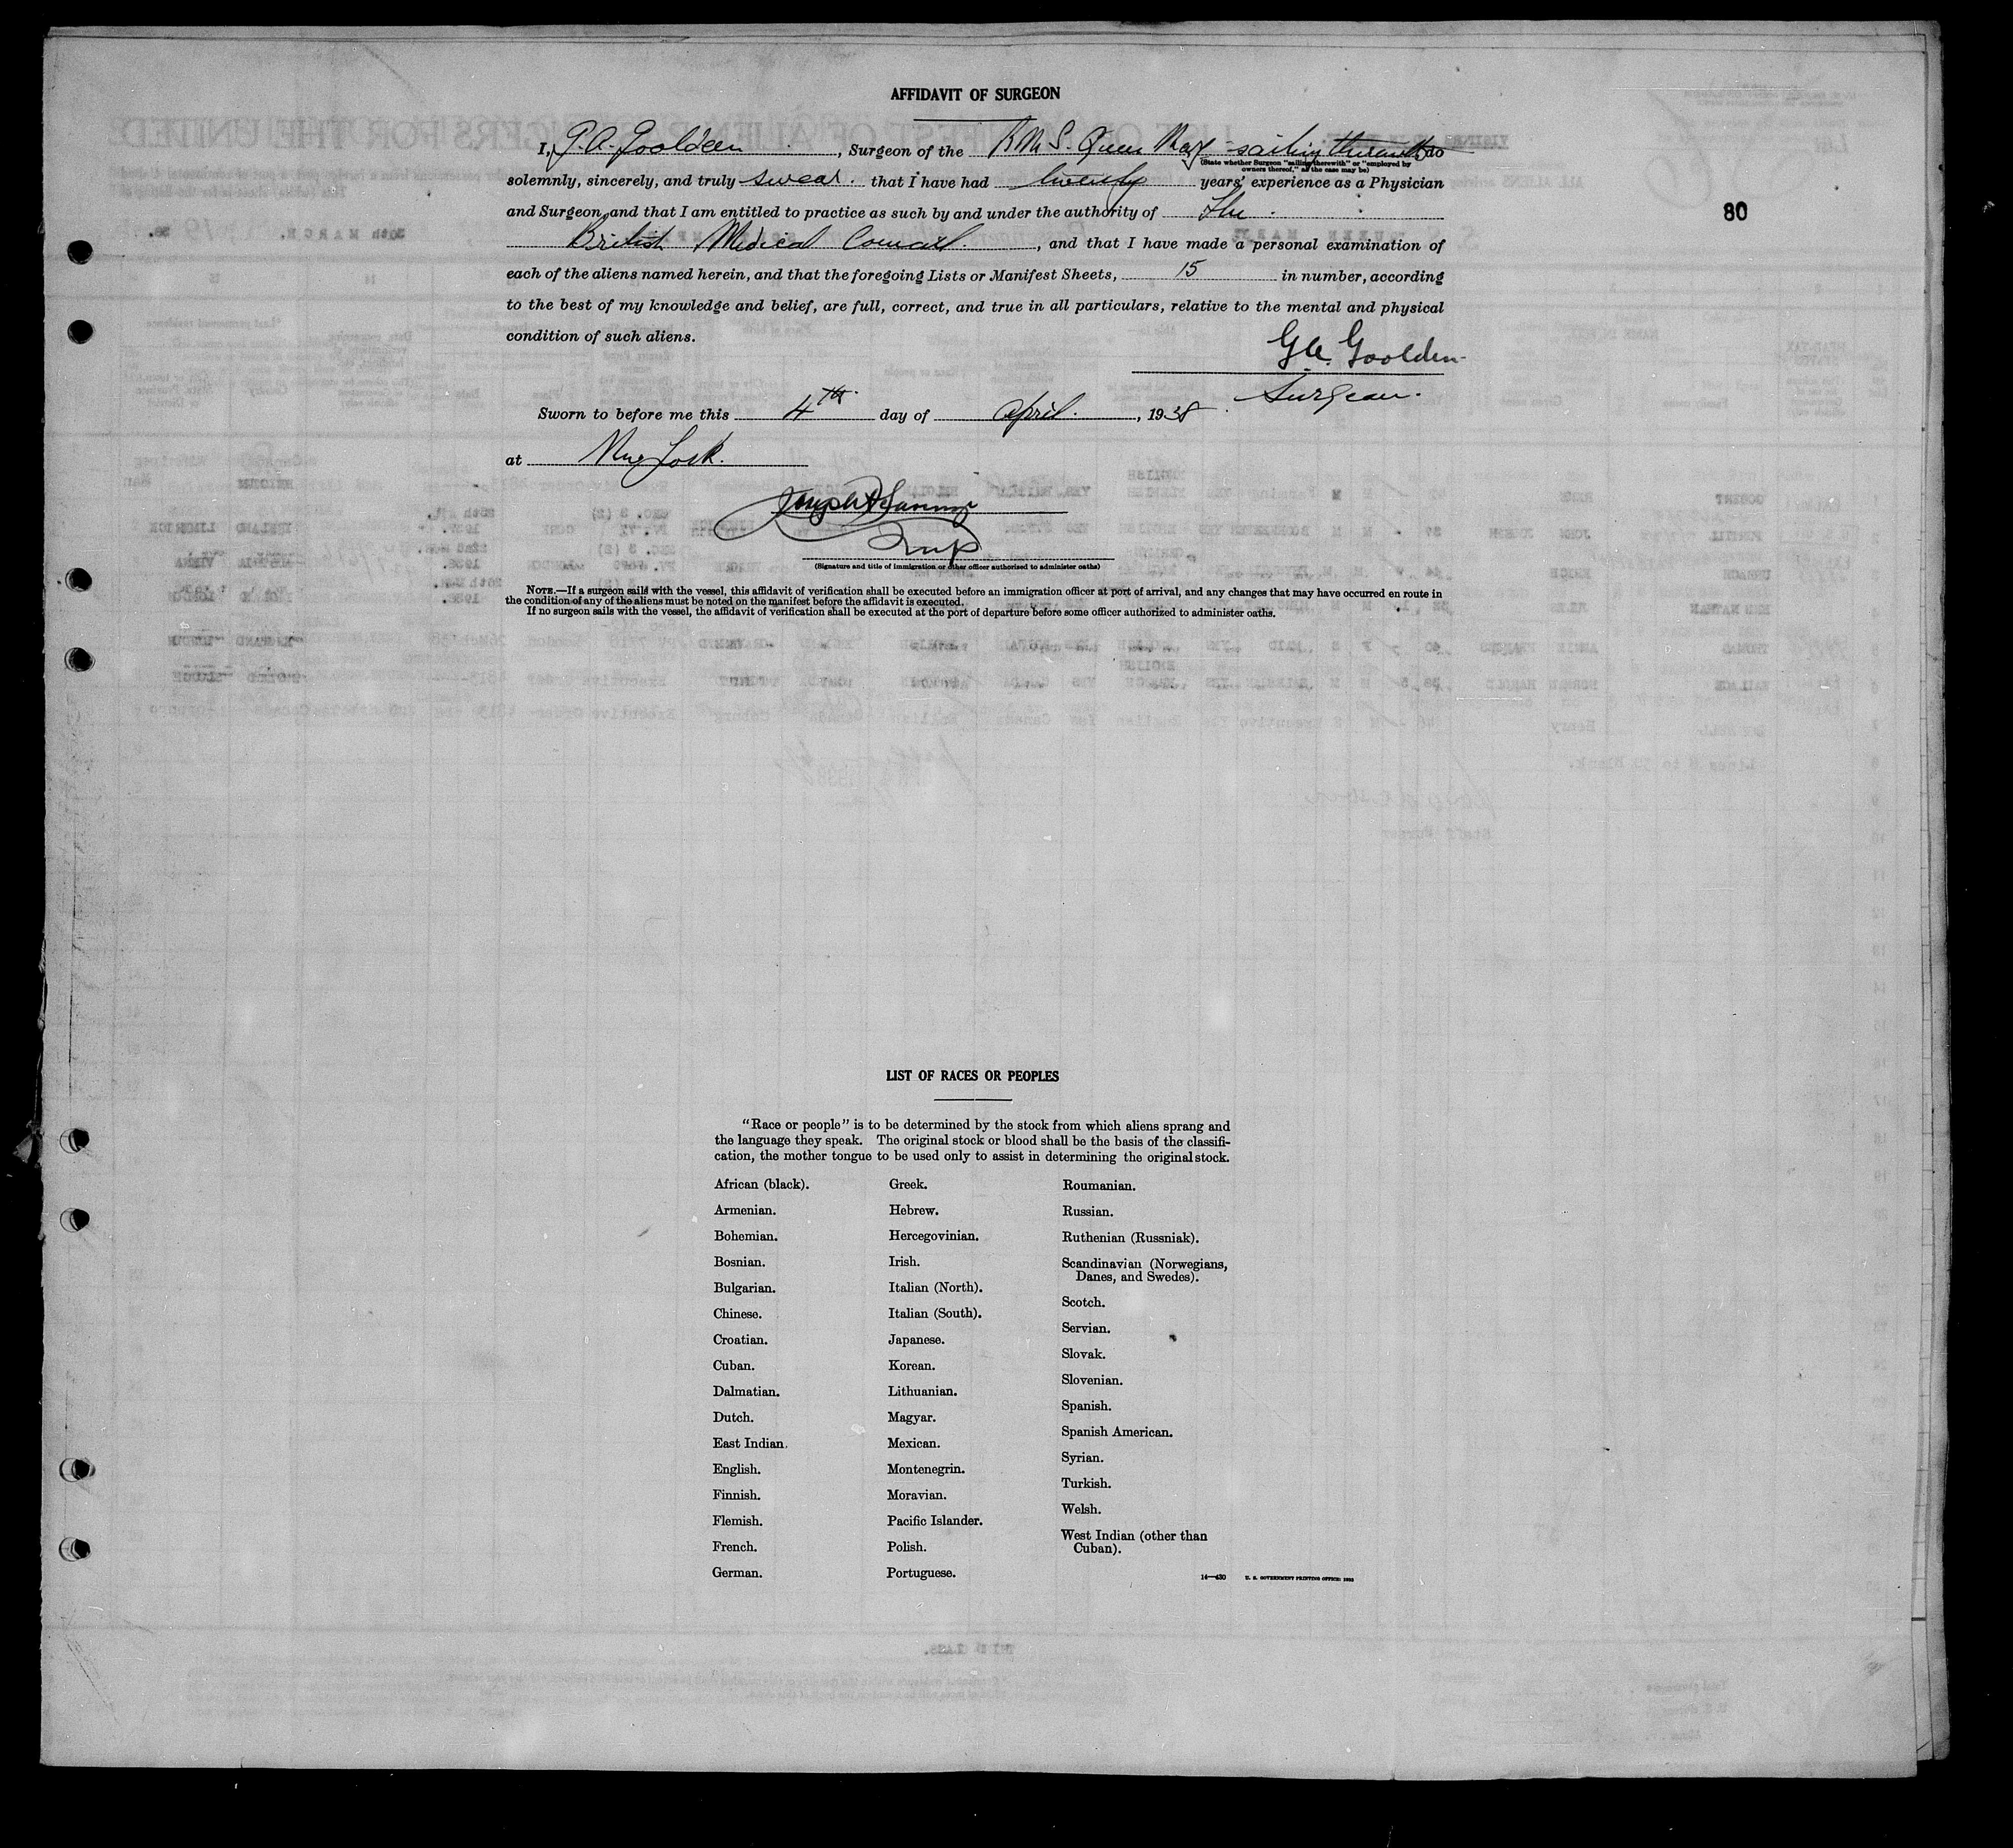 AFFIDAVIT OF SURGEON
I, G.A. Goolden, Surgeon of the R.M.S. Queen Mary sailing therewith do
(State whether Surgeon "sailing therewith" or "employed by
owners thereof," as the case may be)
solemnly, sincerely, and truly swear. that I have had twenty years' experience as a Physician
and Surgeon, and that I am entitled to practice as such by and under the authority of The
British Medical Council., and that I have made a personal examination of
80
each of the aliens named herein, and that the foregoing Lists or Manifest Sheets, 15 in number, according
to the best of my knowledge and belief, are full, correct, and true in all particulars, relative to the mental and physical
condition of such aliens.
G.A. Goolden
Surgeon.
Sworn to before me this 4th day of April., 1938.
at New York.
(Signature and title of immigration or other officer authorized to administer oaths)
NOTE.—If a surgeon sails with the vessel, this affidavit of verification shall be executed before an immigration officer at port of arrival, and any changes that may have occurred en route in
the condition of any of the aliens must be noted on the manifest before the affidavit is executed.
If no surgeon sails with the vessel, the affidavit of verification shall be executed at the port of departure before some officer authorized to administer oaths.
LIST OF RACES OR PEOPLES
"Race or people" is to be determined by the stock from which aliens sprang and
the language they speak. The original stock or blood shall be the basis of the classifi-
cation, the mother tongue to be used only to assist in determining the original stock.
African (black).
Armenian.
Bohemian.
Bosnian.
Bulgarian.
Chinese.
Croatian.
Cuban.
Dalmatian.
Dutch.
East Indian.
English.
Finnish.
Flemish.
French.
German.
Greek.
Hebrew.
Hercegovinian.
Irish.
Italian (North).
Italian (South).
Japanese.
Korean.
Lithuanian.
Magyar.
Mexican.
Montenegrin.
Moravian.
Pacific Islander.
Polish.
Portuguese.
Roumanian.
Russian.
Ruthenian (Russniak).
Scandinavian (Norwegians,
Danes, and Swedes).
Scotch.
Servian.
Slovak.
Slovenian.
Spanish.
Spanish American.
Syrian.
Turkish.
Welsh.
West Indian (other than
Cuban).
14—430 U. S. GOVERNMENT PRINTING OFFICE: